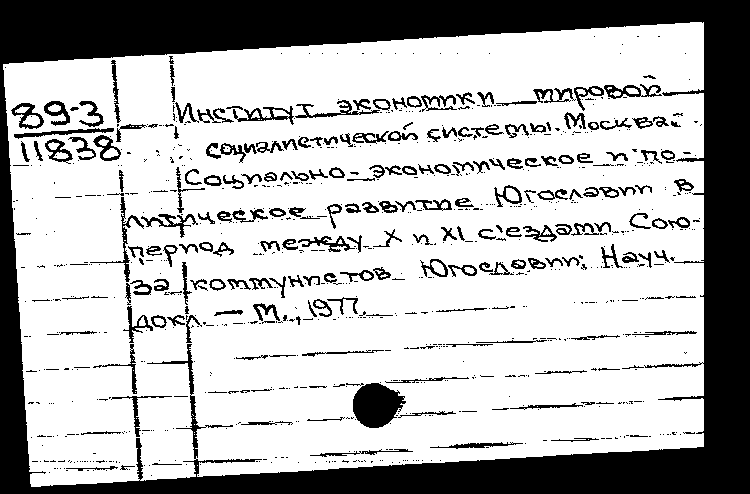 89-3
11838
Институт экономики мировой
социалистической системы. Москва.
Социально-экономическое и по-
литическое развитие Югославии в
период между X и XI с'ездами Сою-
за коммунистов Югославии: Науч.
докл. — М., 1977.